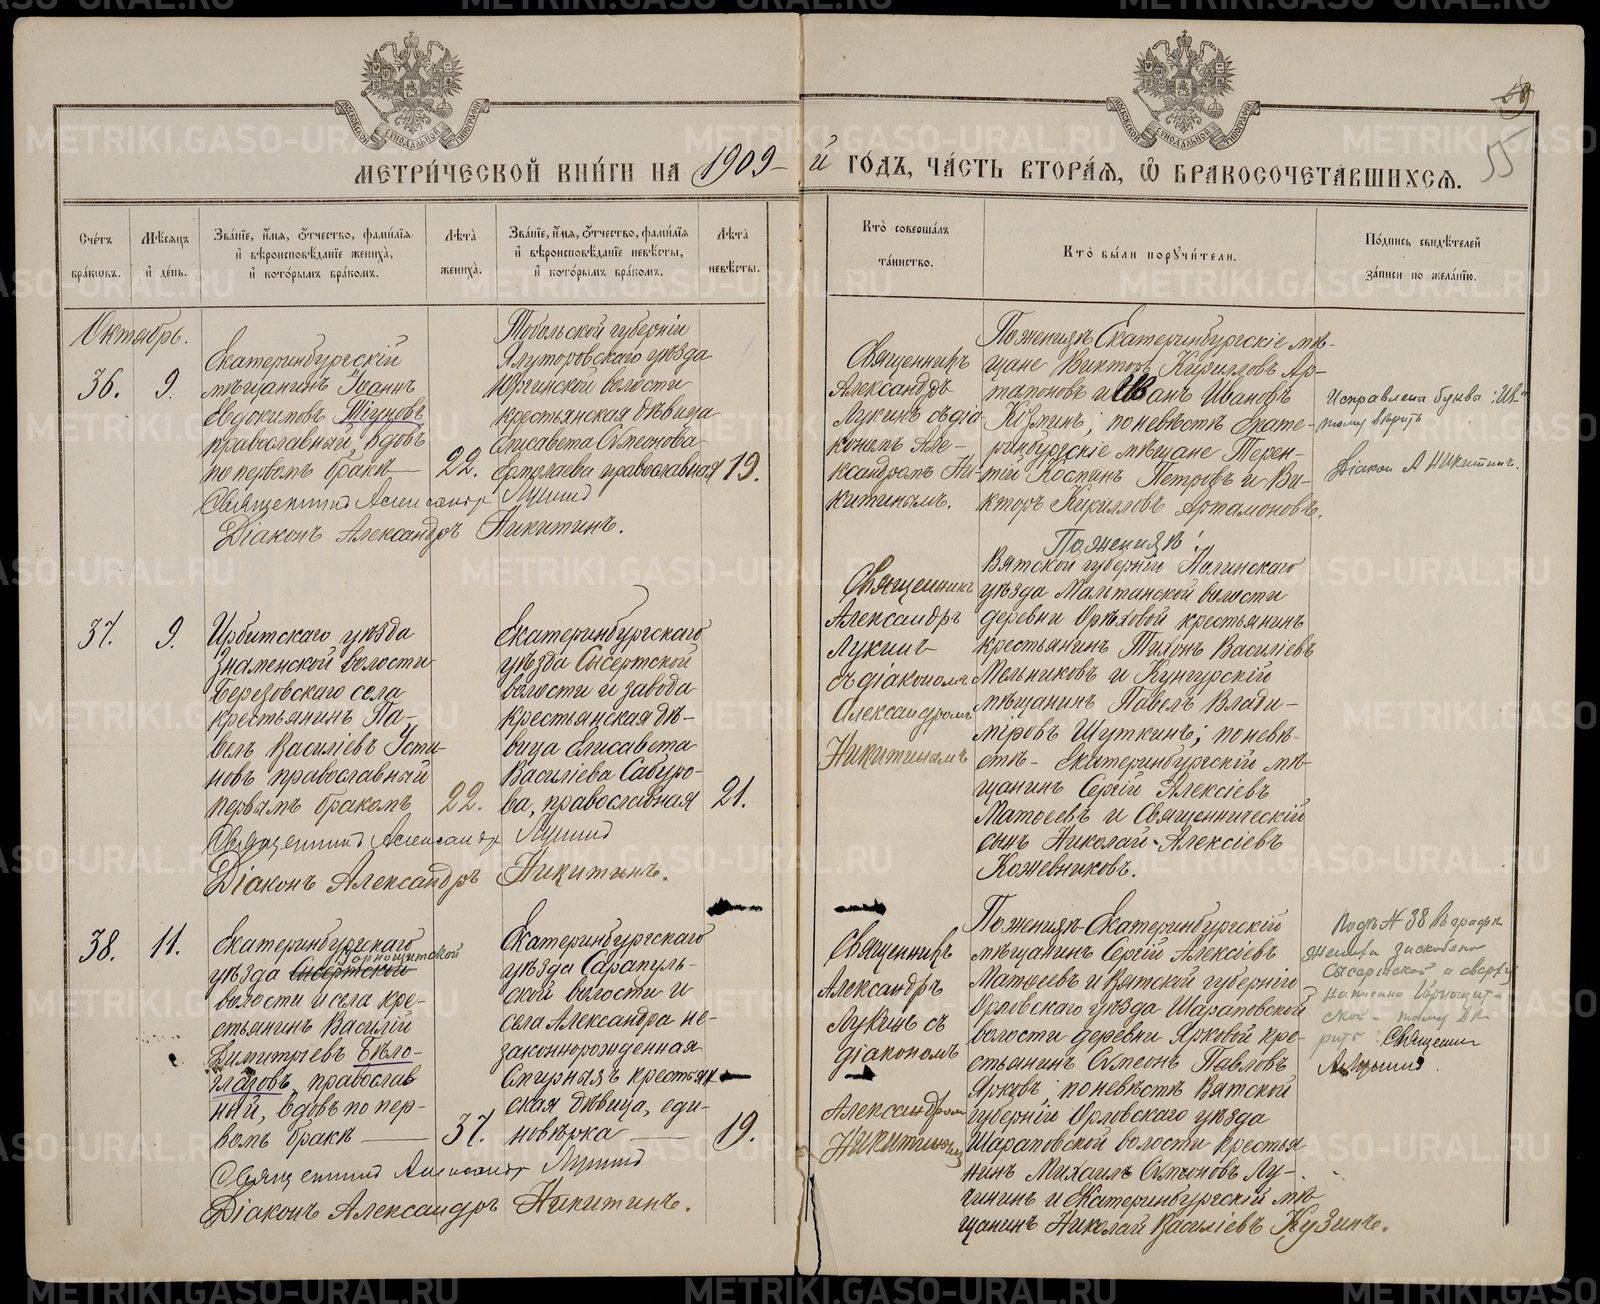 МЕТРИ́ЧЕСКОЙ КНИ́ГИ НА 1909-й ГО́ДЪ, ЧА́СТЬ ВТОРА́Я, Ѿ БРАКОСОЧЕТА́ВШИХСЯ.
59
55
Сче́тъ бра́ковъ.
Мѣ́сяцъ и де́нь.
Зва́нїе, и́мя, о́тчество, фами́лїя и вѣроисповѣ́данїе жениха̀, и кото́рымъ бра́комъ.
Лѣ́та жениха̀.
Зва́нїе, и́мя, о́тчество, фами́лїя и вѣроисповѣ́данїе невѣ́сты, и кото́рымъ бра́комъ.
Лѣ́та невѣ́сты.
Кто̀ соверша́лъ та́инство.
Кто̀ бы́ли поручи́тели.
По́дпись свидѣ́телей за́писи по жела́нїю.
Октябрь.
36.
9.
Екатеринбургскій
мѣщанинъ Іоаннъ
Евдокимовъ
православный, вдовъ
по первомъ бракѣ
22.
Тобольской губерніи
Ялуторовскаго уѣзда
волости
крестьянская дѣвица
Елисавета Симеонова
Ермолаева православная
19.
Священникъ Александръ Лукинъ
Діаконъ Александръ Никитинъ.
Священникъ
Александръ
Лукинъ съ діа-
кономъ Але-
ксандромъ Ни-
китинымъ.
По женихѣ Екатеринбургскіе мѣ-
щане Викторъ Кирилловъ Ар-
тамоновъ и Иванъ Ивановъ
Кузминъ; по невѣстѣ Екате-
ринбургскіе мѣщане Терен-
тій Петровъ и Ви-
кторъ Кирилловъ Артамоновъ.
Исправлена буква "Ив"
тому вѣрить
Діакон А Никитинъ.
37.
9.
Ирбитскаго уѣзда
Знаменской волости
Березовскаго села
крестьянинъ Па-
велъ Василіевъ Усти-
новъ православный
первымъ бракомъ
22.
Екатеринбургскаго
уѣзда Сысертской
волости и завода
крестьянская дѣ-
вица Елисавета
Василіева Сабуро-
ва, православная
21.
Священникъ Александръ Лукинъ
Діаконъ Александръ Никитинъ.
Священникъ
Александръ
Лукинъ
съ діакономъ
Александромъ
Никитинымъ
По женихѣ:
Вятской губерніи Нолинскаго
уѣзда волости
деревни Орѣховой крестьянинъ
крестьянинъ Тихонъ Василіевъ
Мельниковъ и Кунгурскій
мѣщанинъ Павелъ Влади-
міровъ Шуткинъ; по невѣ-
стѣ - Екатеринбургскій мѣ-
щанинъ Сергій Алексіевъ
Матвеевъ и Священническій
сынъ Николай Алексіевъ
Кожевниковъ.
38.
11.
Екатеринбургскаго
Горнощитской
уѣзда Сысертской
волости и села кре-
стьянинъ Василій
Димитріевъ Бѣло-
глазовъ, православ
ный, вдовъ по пер-
вомъ бракѣ
37.
Екатеринбургскаго
уѣзда Сарапуль-
ской волости и
села Александра не-
законнорожденная
Смирныхъ крестьян
ская дѣвица, еди-
новѣрка
19.
Священникъ Александръ Лукинъ
Діаконъ Александръ Никитинъ.
Священникъ
Александръ
Лукинъ съ
діакономъ
Александромъ
Никитинымъ
По женихѣ Екатеринбургскій
мѣщанинъ Сергій Алексіевъ
Матвеевъ и Вятской губерніи
Орловскаго уѣзда Шараповской
волости деревни Ярковой кре-
стьянинъ Симеонъ Павловъ
Ярковъ; по невѣстѣ Вятской
губерніи Орловскаго уѣзда
Шараповской волости крестья
нинъ Михаилъ Лу-
чининъ и Екатеринбургскій мѣ
щанинъ Николай Василіевъ Кузинъ.
Подъ № 38 въ графѣ
жениха зискоблено
Сысертской а сверху
написано Горнощит-
ской - тому вѣ-
рить. Священни
А. Лукинъ.
METRIKI.GASO-URAL.RU